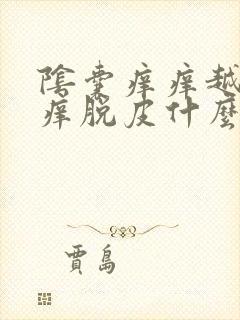 陰囊痒痒越
痒脱皮什麼
賈島